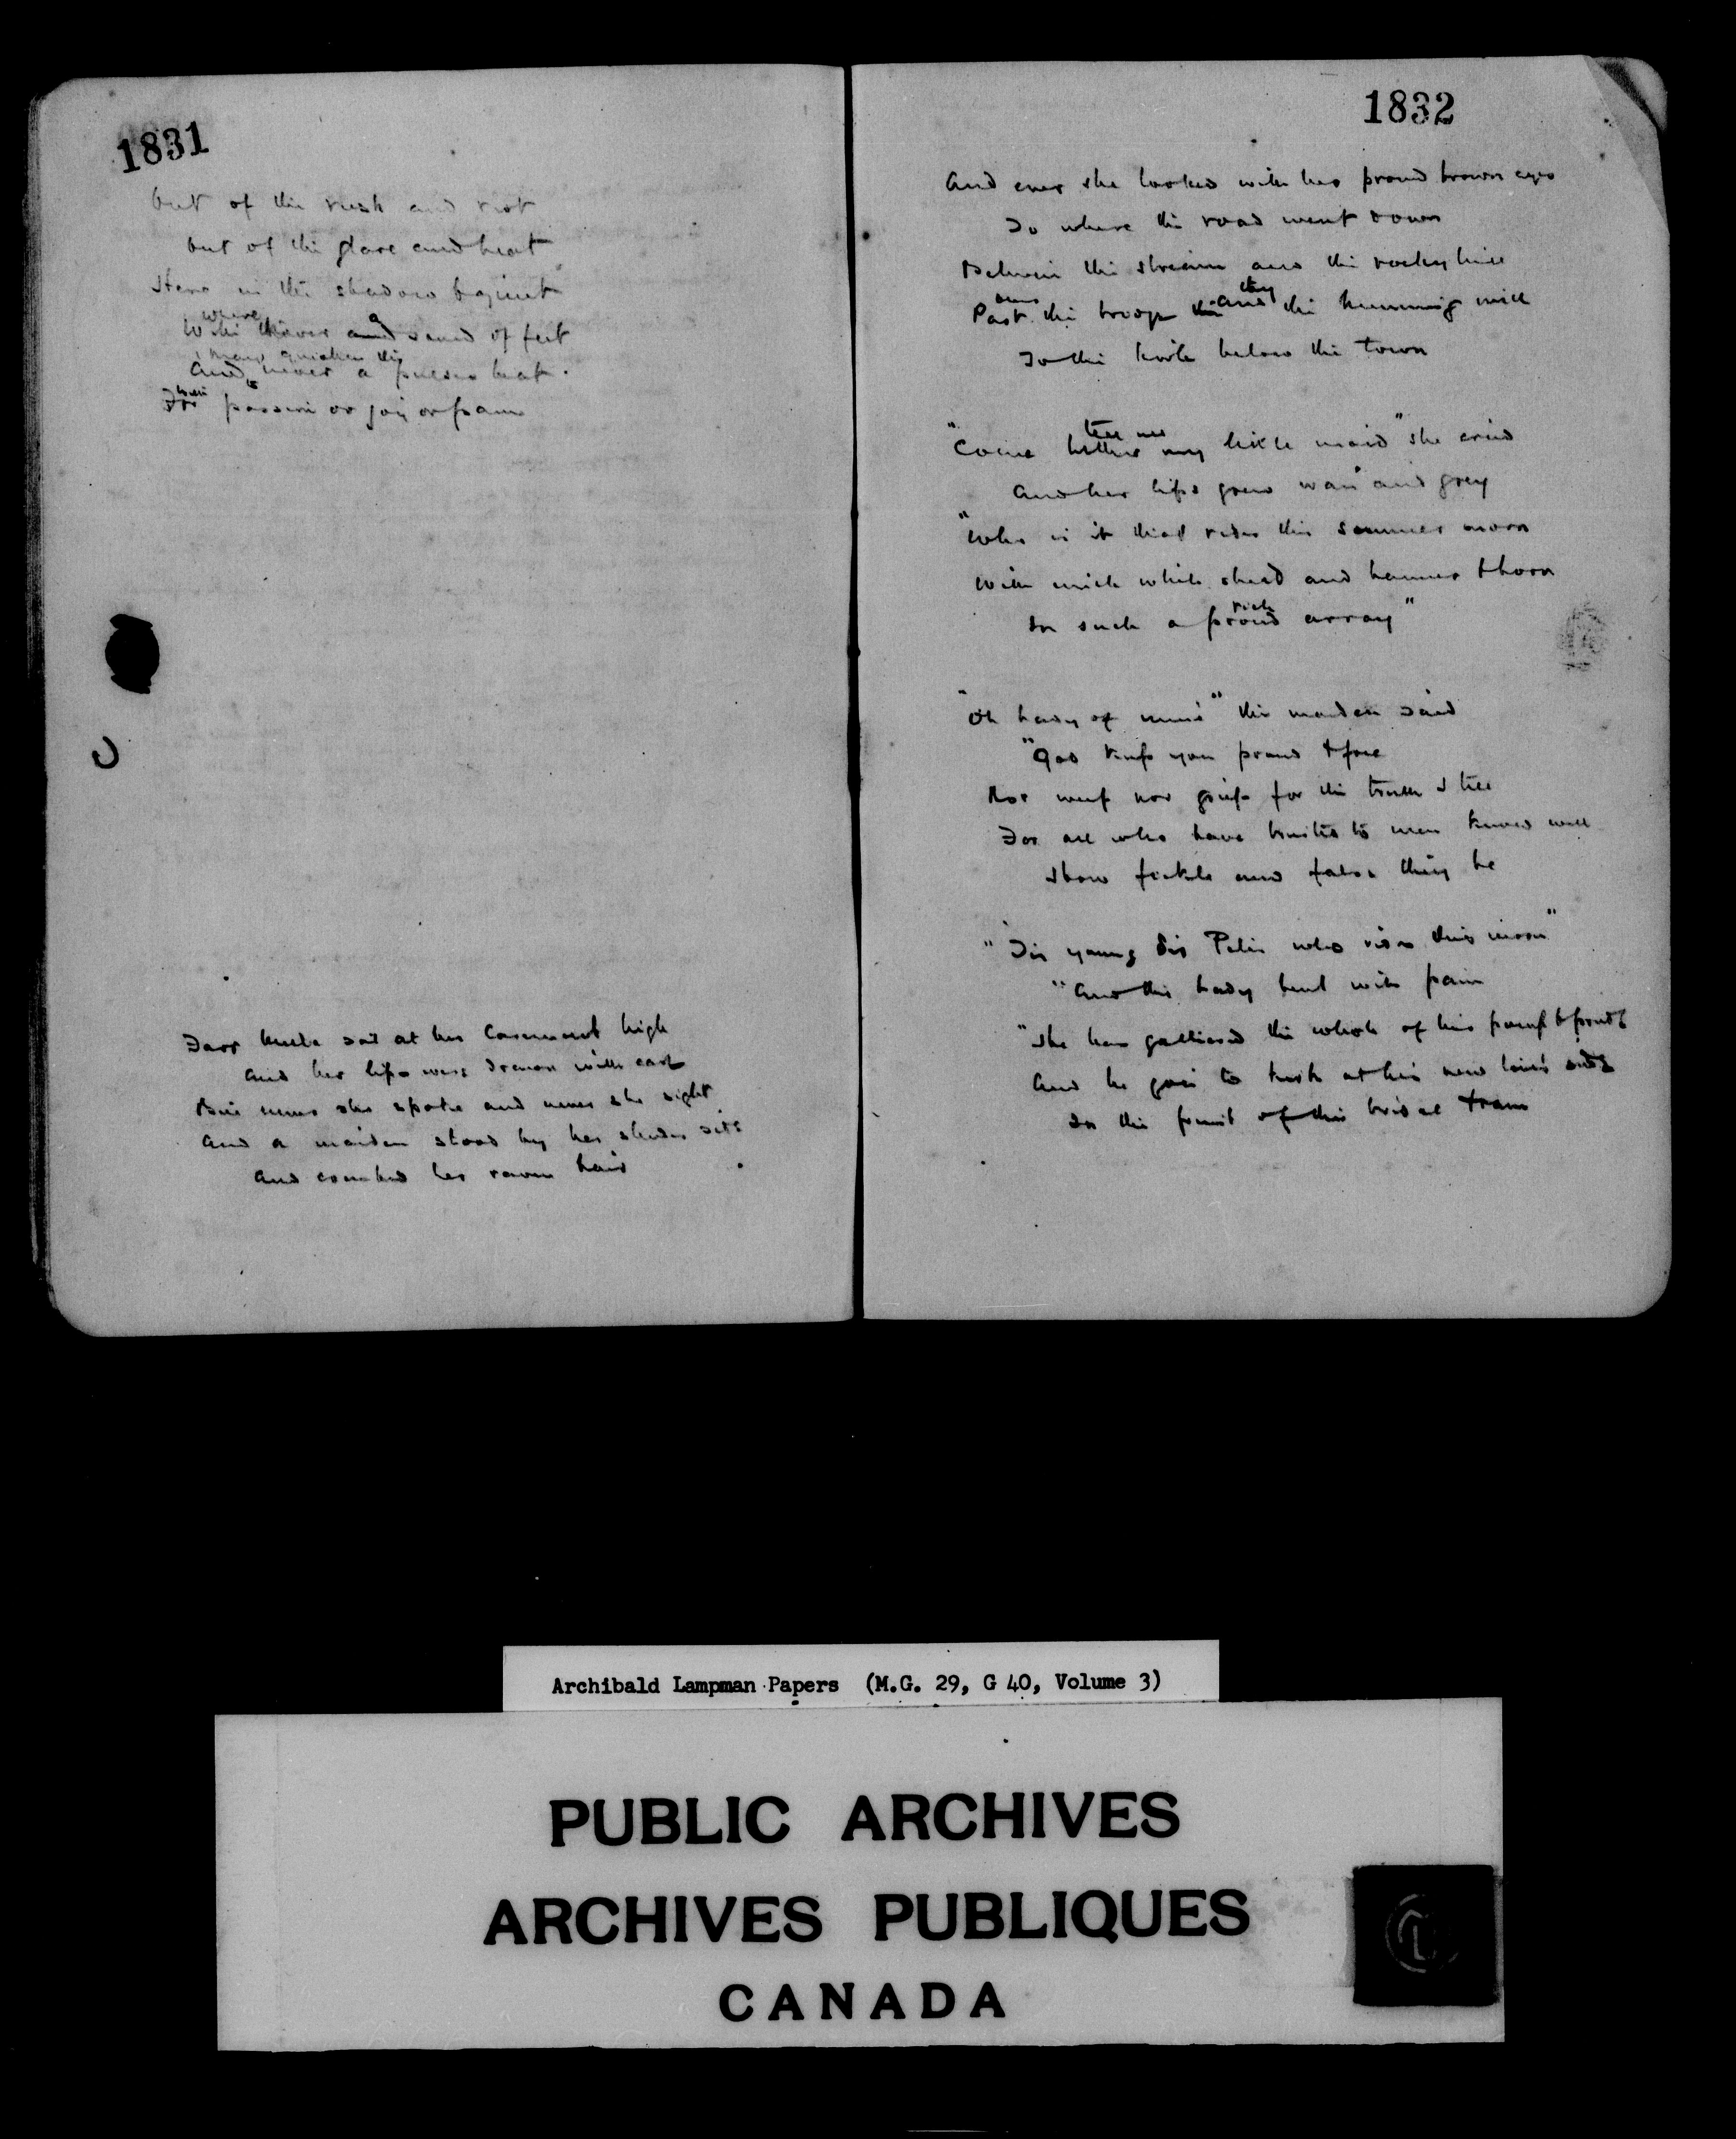 1831
Out of the rush and riot
Out of the glare and heat
Here in the shadow by
where
With never a sound of feet
may quicken the
And never a pulse's beat.
For passion or joy or pain
Fair sat at her casement high
And her lips were drawn with care
But never she spoke and never she sighed
And a maiden stood by her side
And combed her raven hair
1832
And ever she looked with her proud brown eyes
To where the road went down
Between the stream and the rocky hill
Past the and the humming mill
To the below the town
tell me
"Come hither my little maid" she cried
And her lips grew wan and grey
"Who is it that rides this summer morn
With milk white steed and horn
rich
In such a proud array"
"Oh Lady of mine" the maiden said
"God keep you proud & free
Nor weep nor grieve for the truth I tell
For all who have trusted to men know well
How fickle and false they be
"'Tis young Sir who rides this morn"
"And the Lady bent with pain
"He has gathered the whole of his pomp & pride
And he goes to at his new love's side
In the front of the bridal train
Archibald Lampman Papers (M.G. 29, G 40, Volume 3)
PUBLIC ARCHIVES
ARCHIVES PUBLIQUES
CANADA